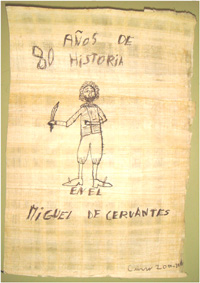 AÑOS DE
80 HISTORIA
EN EL
MIGUEL DE CERVANTES